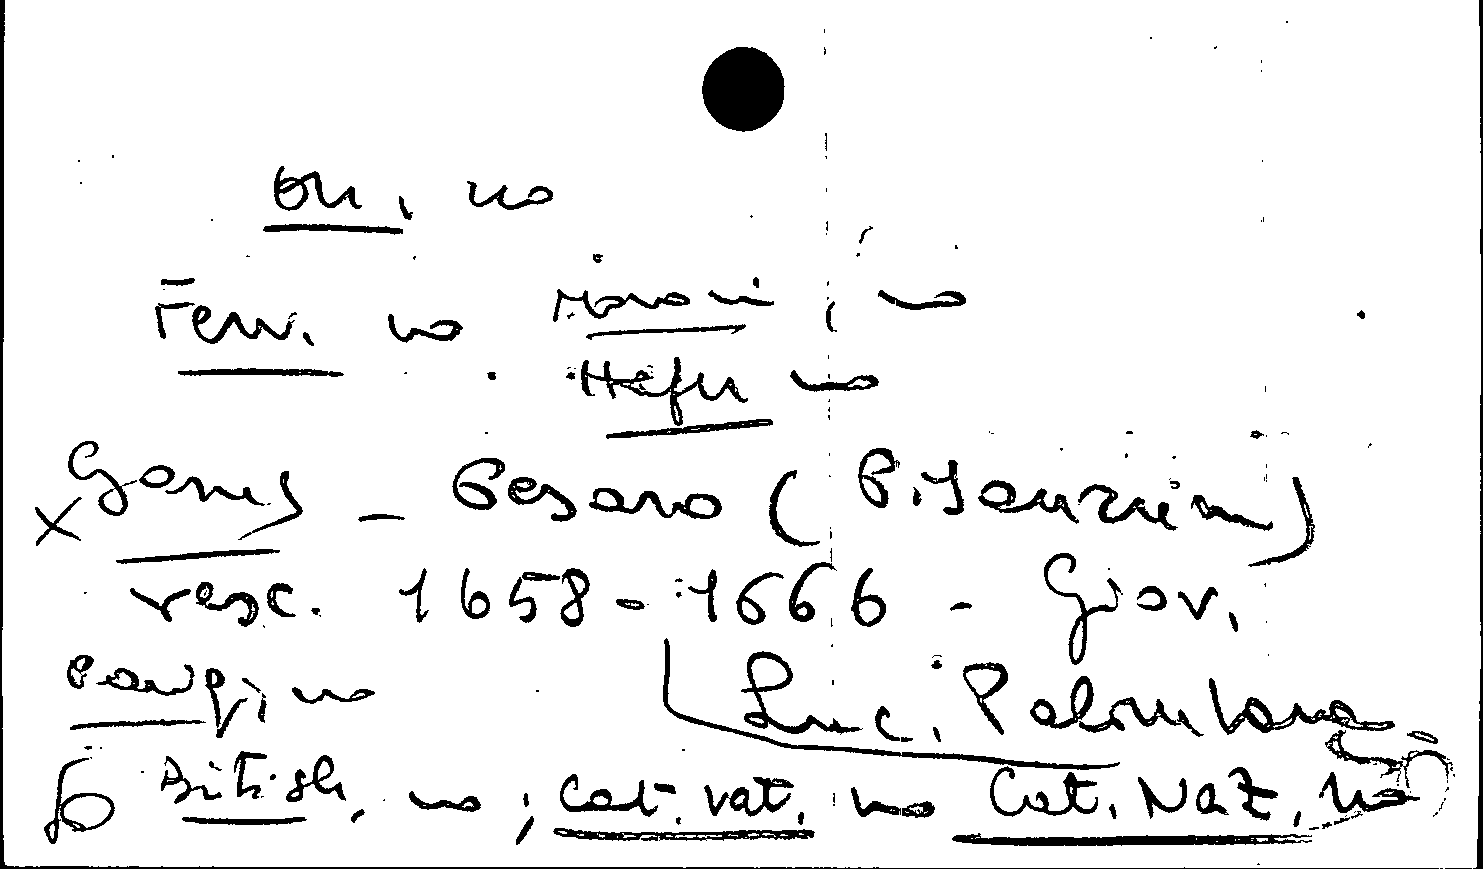 On, no
Ferr. no Moroni, no
Hefu no
x Gams - Pesaro (P. Isaurien)
vesc. 1658 - 1666 - Giov.
Luc. Palombara
no
British, no; Cat. Vat. no Cat. Naz, no